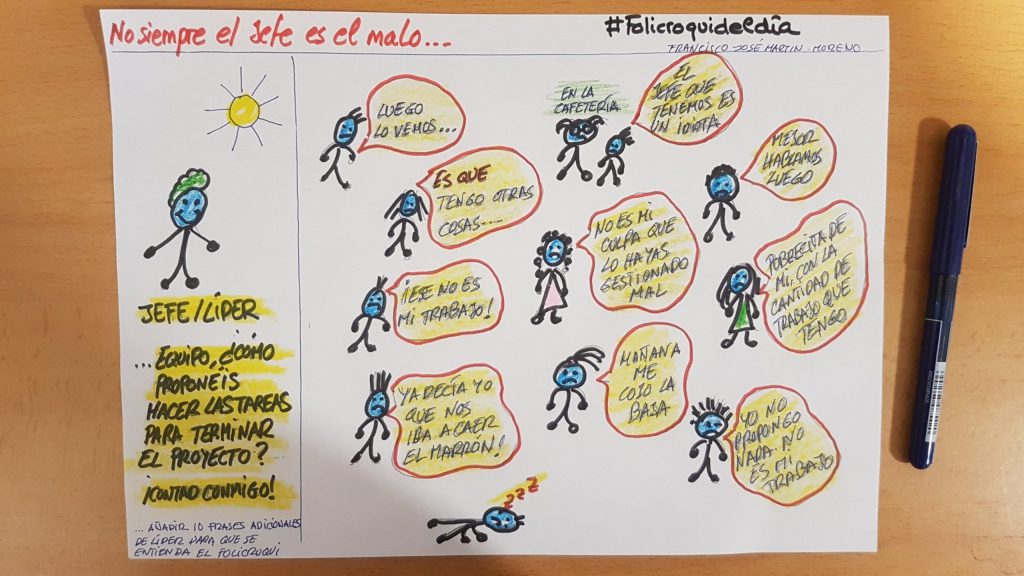 No siempre el Jefe es el malo...
#Folicroquideldía
FRANCISCO JOSÉ MARTIN-MORENO
JEFE/LÍDER
... EQUIPO, ¿CÓMO
PROPONEÍS
HACER LAS TAREAS
PARA TERMINAR
EL PROYECTO?
¡CONTAD CONMIGO!
... AÑADIR 10 FRASES ADICIONALES
DE LÍDER PARA QUE SE
ENTIENDA EL FOLICROQUI
LUEGO
LO VEMOS...
EN LA
CAFETERÍA
EL
JEFE QUE
TENEMOS ES
UN IDIOTA
ES QUE
TENGO OTRAS
COSAS....
MEJOR
HABLAMOS
LUEGO
NO ES MI
CULPA QUE
LO HAYAS
GESTIONADO
MAL
POBRECITA DE
MI, CON LA
CANTIDAD DE
TRABAJO QUE
TENGO
¡ESE NO ES
MI TRABAJO!
YA DECÍA YO
QUE NOS
IBA A CAER
EL MARRÓN!
MAÑANA
ME
COJO LA
BAJA
YO NO
PROPONGO
NADA ¡NO
ES MI
TRABAJO
ZZZ